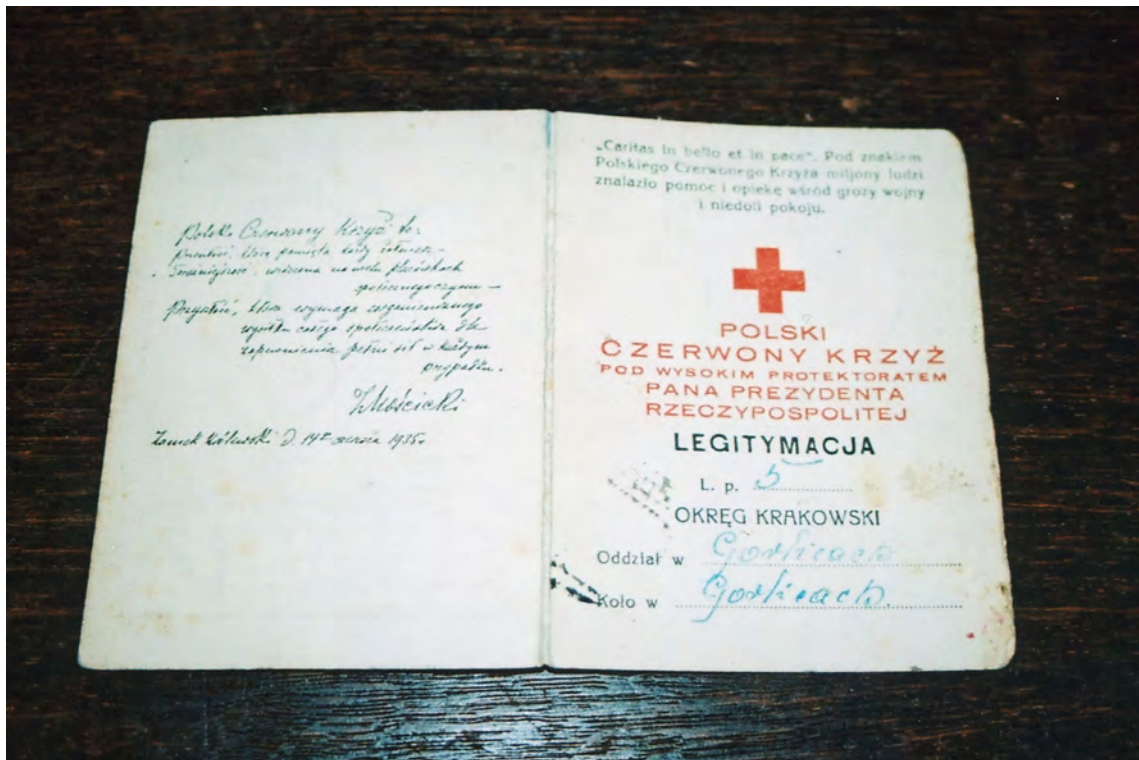 Polski Czerwony Krzyż to:
którą pamięta każdy żołnierz —
Teraźniejszość, widziana na wielu placówkach
społecznego czynu —
Przyszłość, która wymaga zorganizowanego
wysiłku całego społeczeństwa dla
zapewnienia pełni sił w każdym
przypadku.
IMościcki
Zamek Królewski D. 1935 r
„Caritas in bello et in pace". Pod znakiem
Polskiego Czerwonego Krzyża miljony ludzi
znalazło pomoc i opiekę wśród grozy wojny
i niedoli pokoju.
POLSKI
CZERWONY KRZYŻ
POD WYSOKIM PROTEKTORATEM
PANA PREZYDENTA
RZECZYPOSPOLITEJ
LEGITYMACJA
L. p. 5
OKRĘG KRAKOWSKI
Oddział w Gorlicach
Koło w Gorlicach.